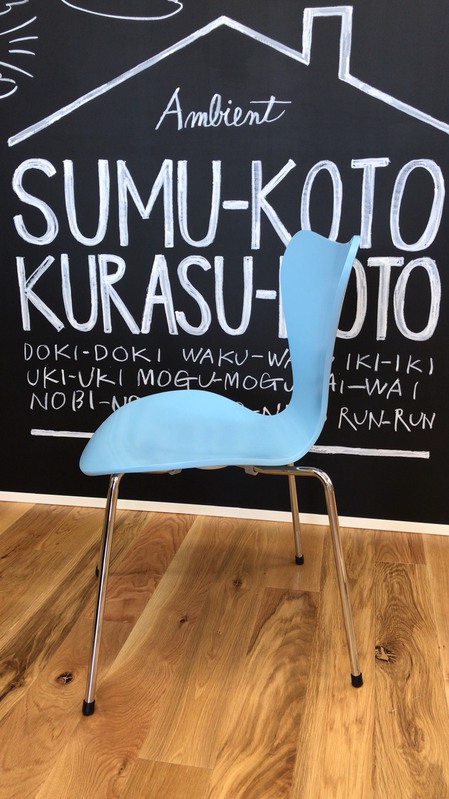 Ambient
SUMU-KOTO
KURASU- OTO
DOKI-DOKI WAKU-WA IKI-IKI
UKI-UKI MOGU-MOGU AI-WAI
NOBI-N RUN-RUN